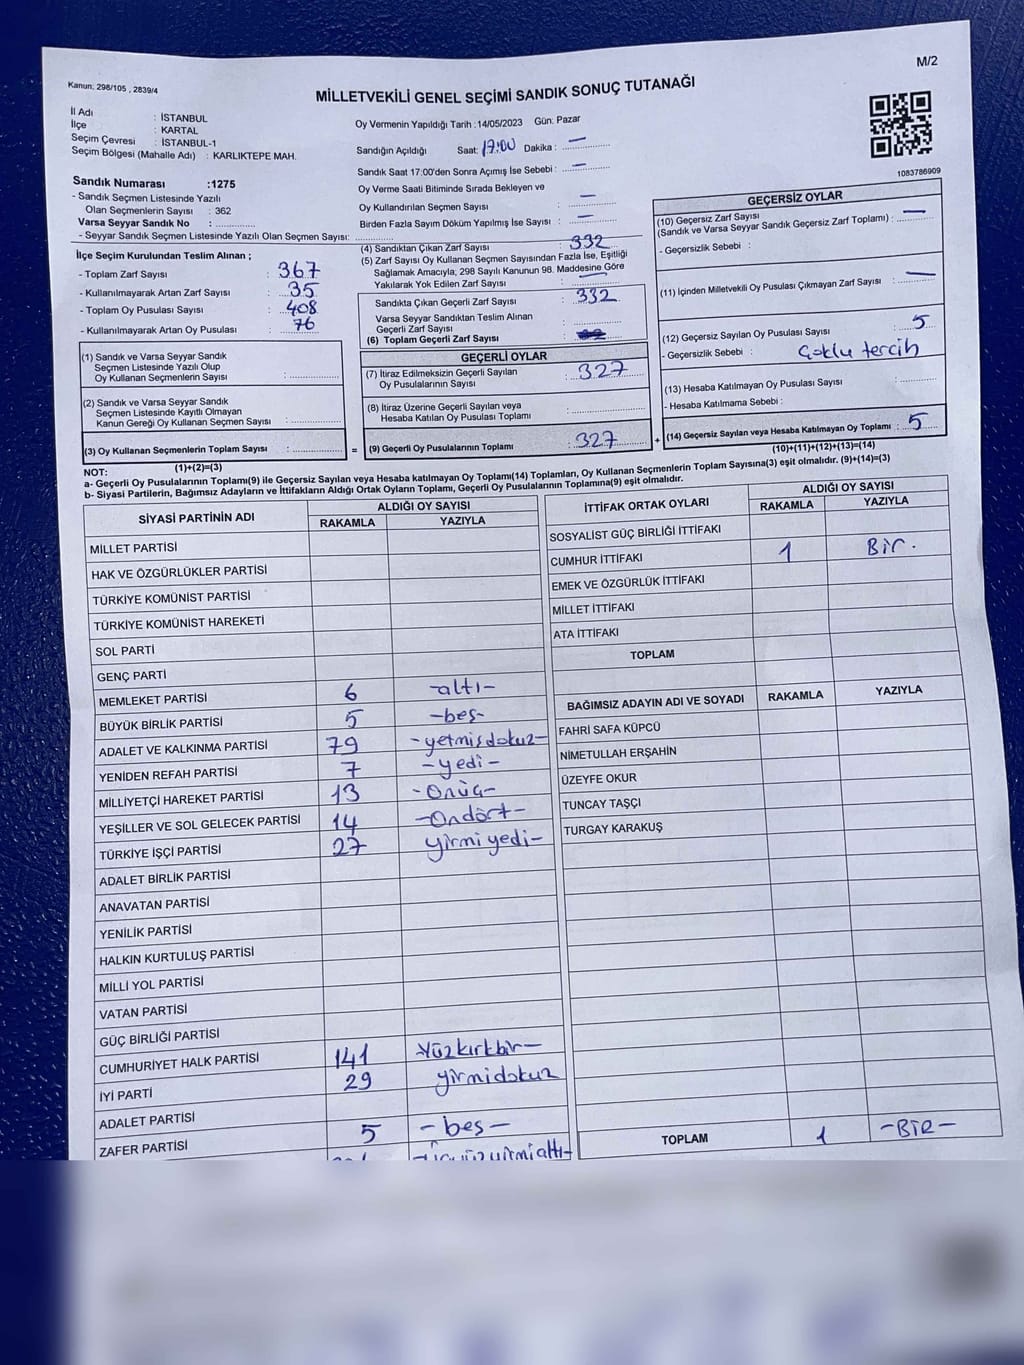 M/2
Kanun: 298/105 , 2839/4
MİLLETVEKİLİ GENEL SEÇİMİ SANDIK SONUÇ TUTANAĞI
İl Adı : İSTANBUL
İlçe : KARTAL
Seçim Çevresi : İSTANBUL-1
Seçim Bölgesi (Mahalle Adı) : KARLIKTEPE MAH.
Sandık Numarası :1275
- Sandık Seçmen Listesinde Yazılı
Olan Seçmenlerin Sayısı : 362
Varsa Seyyar Sandık No :
- Seyyar Sandık Seçmen Listesinde Yazılı Olan Seçmen Sayısı:
Oy Vermenin Yapıldığı Tarih :14/05/2023 Gün: Pazar
Sandığın Açıldığı Saat: 17:00 Dakika : —
Sandık Saat 17:00'den Sonra Açımış İse Sebebi : —
Oy Verme Saati Bitiminde Sırada Bekleyen ve
Oy Kullandırılan Seçmen Sayısı : —
Birden Fazla Sayım Döküm Yapılmış İse Sayısı : —
1083786909
İlçe Seçim Kurulundan Teslim Alınan ;
- Toplam Zarf Sayısı : 367
- Kullanılmayarak Artan Zarf Sayısı : 35
- Toplam Oy Pusulası Sayısı : 408
- Kullanılmayarak Artan Oy Pusulası : 76
(1) Sandık ve Varsa Seyyar Sandık
Seçmen Listesinde Yazılı Olup
Oy Kullanan Seçmenlerin Sayısı :
(2) Sandık ve Varsa Seyyar Sandık
Seçmen Listesinde Kayıtlı Olmayan
Kanun Gereği Oy Kullanan Seçmen Sayısı :
(3) Oy Kullanan Seçmenlerin Toplam Sayısı :
(1)+(2)=(3)
(4) Sandıktan Çıkan Zarf Sayısı : 332
(5) Zarf Sayısı Oy Kullanan Seçmen Sayısından Fazla İse, Eşitliği
Sağlamak Amacıyla, 298 Sayılı Kanunun 98. Maddesine Göre
Yakılarak Yok Edilen Zarf Sayısı : —
Sandıkta Çıkan Geçerli Zarf Sayısı : 332
Varsa Seyyar Sandıktan Teslim Alınan
Geçerli Zarf Sayısı :
(6) Toplam Geçerli Zarf Sayısı :
GEÇERLİ OYLAR
(7) İtiraz Edilmeksizin Geçerli Sayılan
Oy Pusulalarının Sayısı : 327
(8) İtiraz Üzerine Geçerli Sayılan veya
Hesaba Katılan Oy Pusulası Toplamı :
= (9) Geçerli Oy Pusulalarının Toplamı : 327 +
GEÇERSİZ OYLAR
(10) Geçersiz Zarf Sayısı
(Sandık ve Varsa Seyyar Sandık Geçersiz Zarf Toplamı) : —
- Geçersizlik Sebebi :
(11) İçinden Milletvekili Oy Pusulası Çıkmayan Zarf Sayısı : —
(12) Geçersiz Sayılan Oy Pusulası Sayısı : 5
- Geçersizlik Sebebi : Çoklu tercih
(13) Hesaba Katılmayan Oy Pusulası Sayısı :
- Hesaba Katılmama Sebebi :
(14) Geçersiz Sayılan veya Hesaba Katılmayan Oy Toplamı : 5
(10)+(11)+(12)+(13)=(14)
NOT:
a- Geçerli Oy Pusulalarının Toplamı(9) ile Geçersiz Sayılan veya Hesaba katılmayan Oy Toplamı(14) Toplamları, Oy Kullanan Seçmenlerin Toplam Sayısına(3) eşit olmalıdır. (9)+(14)=(3)
b- Siyasi Partilerin, Bağımsız Adayların ve İttifakların Aldığı Ortak Oyların Toplamı, Geçerli Oy Pusulalarının Toplamına(9) eşit olmalıdır.
SİYASİ PARTİNİN ADI ALDIĞI OY SAYISI
RAKAMLA YAZIYLA
MİLLET PARTİSİ
HAK VE ÖZGÜRLÜKLER PARTİSİ
TÜRKİYE KOMÜNİST PARTİSİ
TÜRKİYE KOMÜNİST HAREKETİ
SOL PARTİ
GENÇ PARTİ
MEMLEKET PARTİSİ 6 -altı-
BÜYÜK BİRLİK PARTİSİ 5 -beş-
ADALET VE KALKINMA PARTİSİ 79 -yetmişdokuz-
YENİDEN REFAH PARTİSİ 7 -yedi-
MİLLİYETÇİ HAREKET PARTİSİ 13 -onüç-
YEŞİLLER VE SOL GELECEK PARTİSİ 14 -ondört-
TÜRKİYE İŞÇİ PARTİSİ 27 yirmiyedi-
ADALET BİRLİK PARTİSİ
ANAVATAN PARTİSİ
YENİLİK PARTİSİ
HALKIN KURTULUŞ PARTİSİ
MİLLİ YOL PARTİSİ
VATAN PARTİSİ
GÜÇ BİRLİĞİ PARTİSİ
CUMHURİYET HALK PARTİSİ 141 Yüzkırkbir-
İYİ PARTİ 29 yirmidokuz
ADALET PARTİSİ
ZAFER PARTİSİ 5 -beş-
-üçyüzyirmialtı-
İTTİFAK ORTAK OYLARI ALDIĞI OY SAYISI
RAKAMLA YAZIYLA
SOSYALİST GÜÇ BİRLİĞİ İTTİFAKI
CUMHUR İTTİFAKI 1 Bir.
EMEK VE ÖZGÜRLÜK İTTİFAKI
MİLLET İTTİFAKI
ATA İTTİFAKI
TOPLAM
BAĞIMSIZ ADAYIN ADI VE SOYADI RAKAMLA YAZIYLA
FAHRİ SAFA KÜPCÜ
NİMETULLAH ERŞAHİN
ÜZEYFE OKUR
TUNCAY TAŞÇI
TURGAY KARAKUŞ
TOPLAM 1 -BİR-